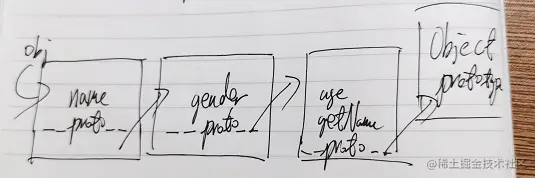 obj
name
__proto__
gender
__proto__
age
getName
__proto__
Object
prototype
@稀土掘金技术社区